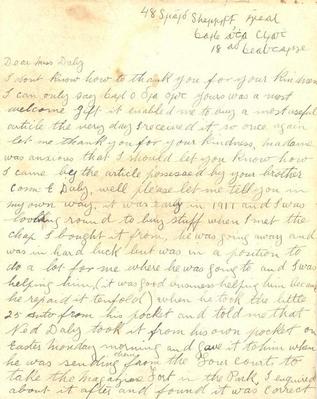 48
Dear Miss Daly
I dont know how to thank you for your kindness
I can only say yours was a most
welcome gift it enabled me to buy a most useful
article the very day I received it so once again
let me thank you for your kindness, madame
was anxious that I should let you know how
I came by the article possessed by your brother
Comm E Daly, well please let me tell you in
my own way, it was early in 1917 and I was
looking round to buy stuff when I met the
chap I bought it from, he was going away and
was in hard luck but was in a position to
do a lot for me where he was going to and I was
helping him, (it was good business helping him because
he repaid it tenfold) when he took the little
25 auto from his pocket and told me that
Ned Daly took it from his own pocket on
Easter Monday morning and gave it to him when
he was sending them from the Four Courts to
take the Magazine Fort in the Park, I enquired
about it after and found it was correct